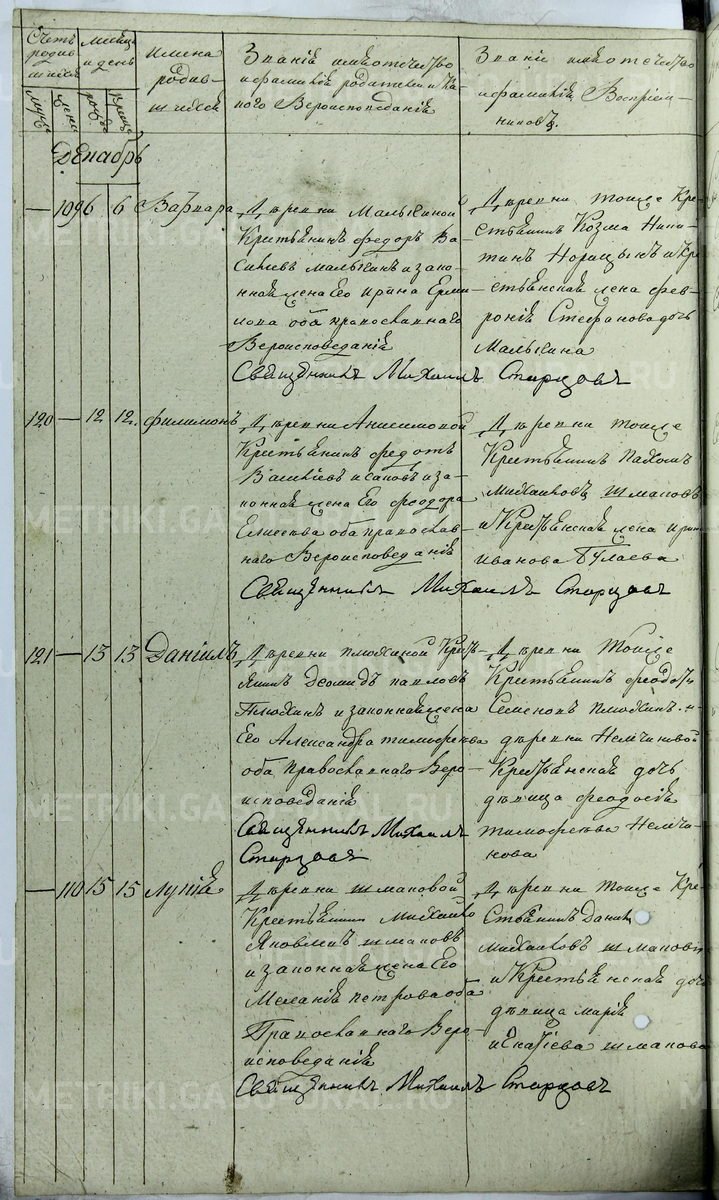 Счетъ родившихся
Мѣсяцъ и день
Имена родившихся
Званіе имя отчество и фамилія родителей и какого Вероисповеданія
Званіе имя отчество и фамилія Восприемниковъ.
муж.
жен.
рожд.
крещ.
Декабрь
— 109 6 6 Варвара
Деревни Малыкиной
Крестьянинъ федоръ Ва-
сильевъ Малыкинъ и зако-
нная жена Его Ирина Ерми-
лова оба православнаго
Вероисповеданія
Деревни тоже Кре-
стьянинъ Козма Ники-
тинъ и Кре-
стьянская жена фев-
ронія Стефанова дочь
Малыкина
Священникъ Михаилъ Старцовъ
120 — 12 12. филимонъ
Деревни Анисимовой
Крестьянинъ федотъ
Василіевъ и за-
конная жена Его феодора
Елисеева оба православ-
наго Вероисповеданія
Деревни тоже
Крестьянинъ Пахомъ
Михаиловъ Шмаковъ
и Крестьянская жена Ирина
Иванова Булаева
Священникъ Михаилъ Старцовъ
121 — 13 13 Даніилъ
Деревни Плюхиной Кресть-
янинъ Деомидъ павловъ
Плюхинъ и законная жена
Его Александра тимофеева
оба Православнаго Веро-
исповеданія
Священникъ Михаилъ
Старцовъ
Деревни тоже
Крестьянинъ феодотъ
Семеновъ Плюхинъ и
деревни Немчиновой
Крестьянская дочь
девица феодосія
тимофеева Немчи-
нова
— 110 15 15 Лукія
Деревни Шмаковой
Крестьянинъ Михайло
Яковлевъ Шмаковъ
и законная жена Его
Меланія петрова оба
Православнаго Веро-
исповеданія
Деревни тоже Кре-
стьянинъ Данило
Михаиловъ Шмаковъ
и Крестьянская дочь
девица Марія
Игнатіева Шмакова
Священникъ Михаилъ Старцовъ
METRIKI.GASO-URAL.RU